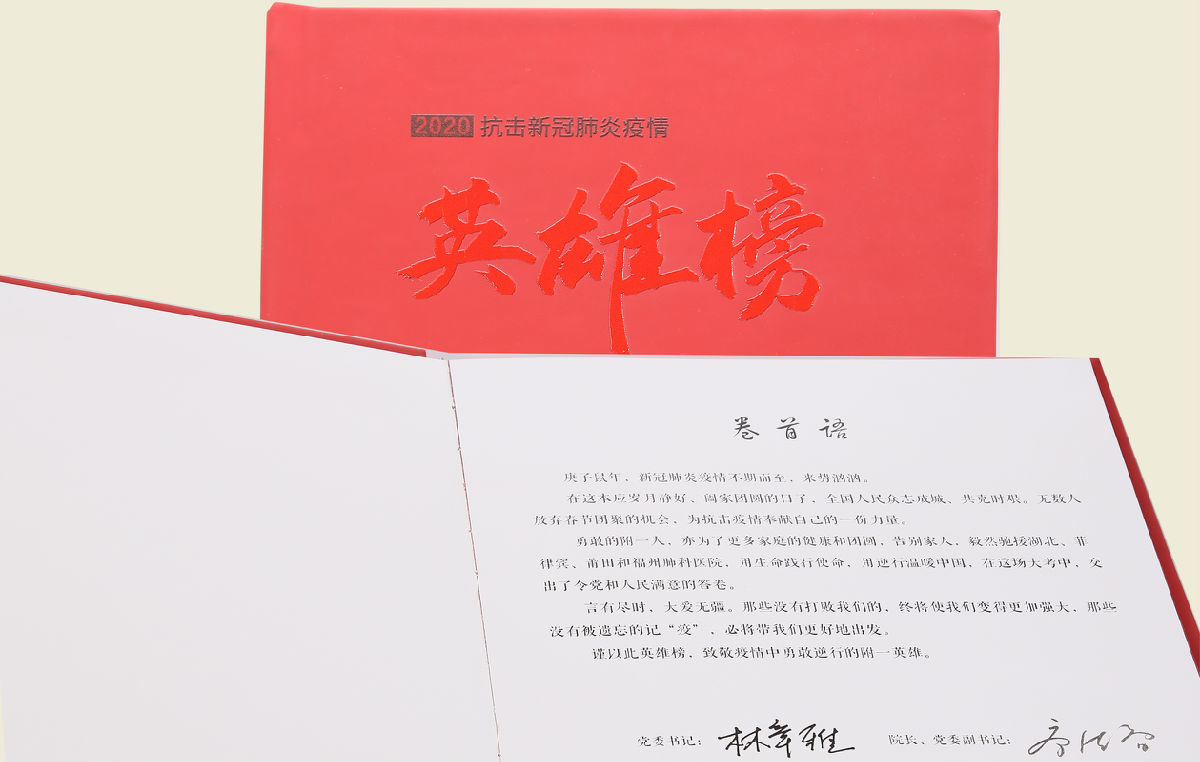 2020 抗击新冠肺炎疫情
英雄榜
卷首语
庚子鼠年，新冠肺炎疫情不期而至，来势汹汹。
在这本应岁月静好、阖家团圆的日子，全国人民众志成城、共克时艰。无数人
放弃春节团聚的机会，为抗击疫情奉献自己的一份力量。
勇敢的附一人，亦为了更多家庭的健康和团圆，告别家人，毅然驰援湖北、菲
律宾、莆田和福州肺科医院，用生命践行使命，用逆行温暖中国，在这场大考中，交
出了令党和人民满意的答卷。
言有尽时，大爱无疆。那些没有打败我们的，终将使我们变得更加强大，那些
没有被遗忘的记“疫”，必将带我们更好地出发。
谨以此英雄榜，致敬疫情中勇敢逆行的附一英雄。
党委书记： 林章雅 院长、党委副书记：